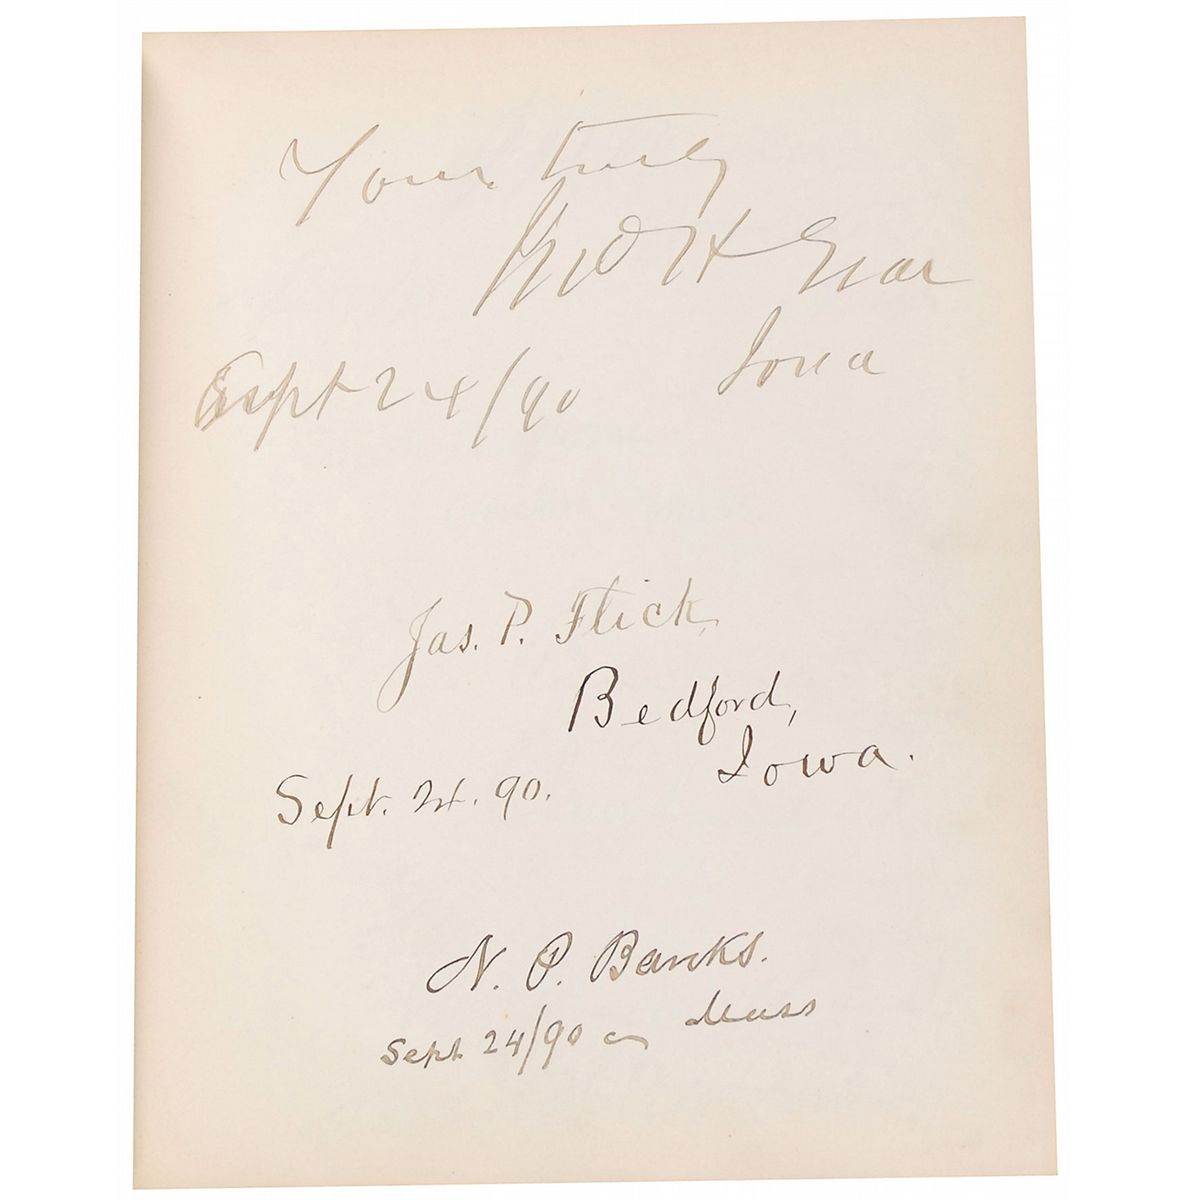 Yours truly
Jno H Gear
Iowa
Sept 24/90
Jas. P. Flick,
Bedford,
Iowa.
Sept. 24. 90.
N. P. Banks.
Mass
Sept 24/90